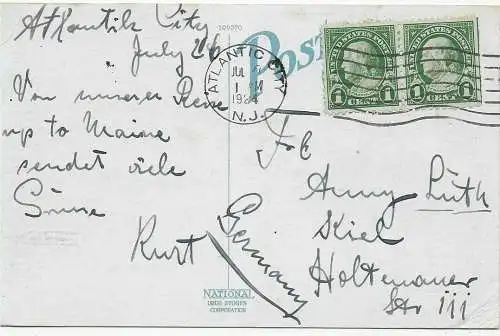 Atlantik City
July 26
Von unserer Reise
up to Maine
sendet viele
Grüsse
Kurt
109070
POST
ATLANTIC CITY
JUL
1 M
1924
N.J.
UNITED STATES POSTAGE
1 CENT 1
UNITED STATES POSTAGE
1 CENT 1
Anny Lüth
Kiel
Holtenauer
Str 111
Germany
NATIONAL
DRUG STORES
CORPORATION